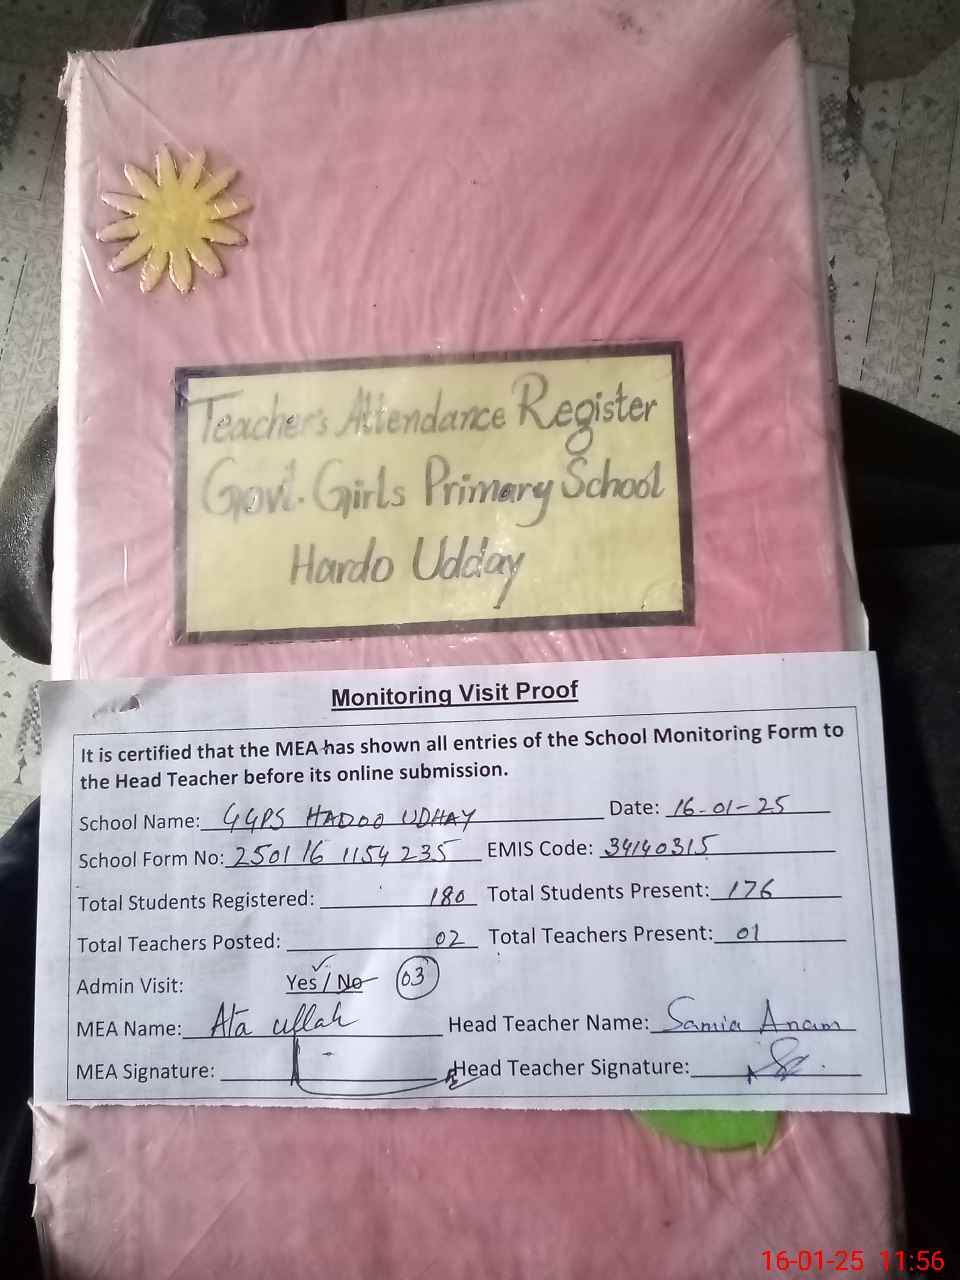 Teacher's Attendance Register
Govt. Girls Primary School
Hardo Udday
Monitoring Visit Proof
It is certified that the MEA has shown all entries of the School Monitoring Form to
the Head Teacher before its online submission.
School Name: GGPS HADOO UDHAY Date: 16-01-25
School Form No: 2501 16 1154 235 EMIS Code: 34140315
Total Students Registered: 180 Total Students Present: 176
Total Teachers Posted: 02 Total Teachers Present: 01
Admin Visit: Yes / No 03
MEA Name: Ata ullah Head Teacher Name: Samia Anam
MEA Signature: Head Teacher Signature:
16-01-25 11:56